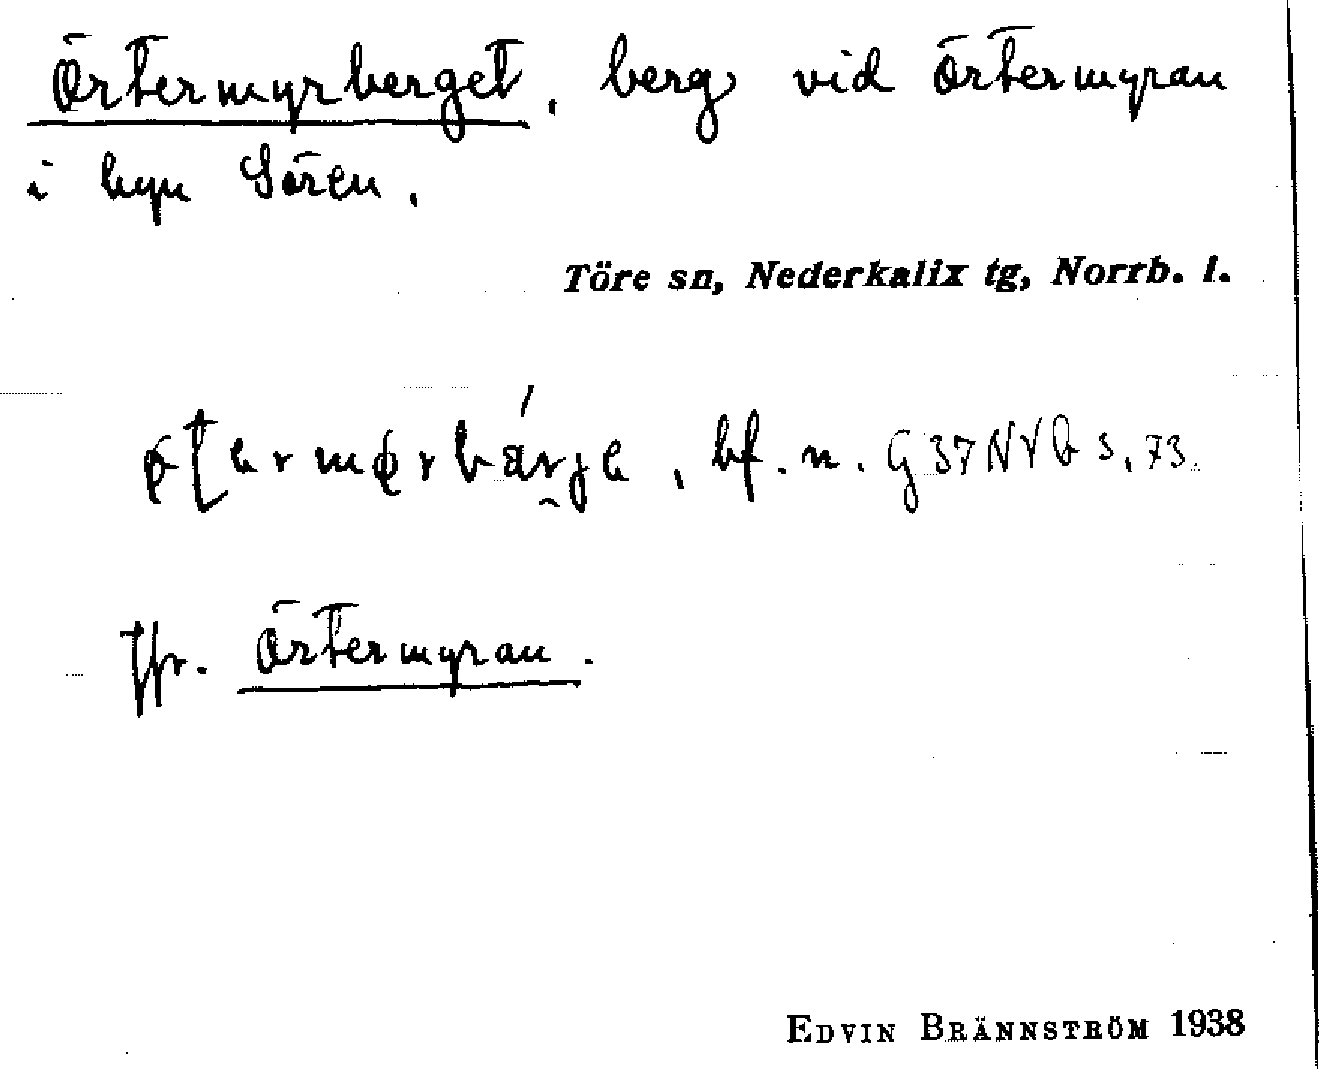 Örtermyrberget, berg vid Örtermyran
i byn Sören.
Töre sn, Nederkalix tg, Norrb. l.
bf. n. G 37 NVb s. 73.
Jfr. Örtermyran.
EDVIN BRÄNNSTRÖM 1938